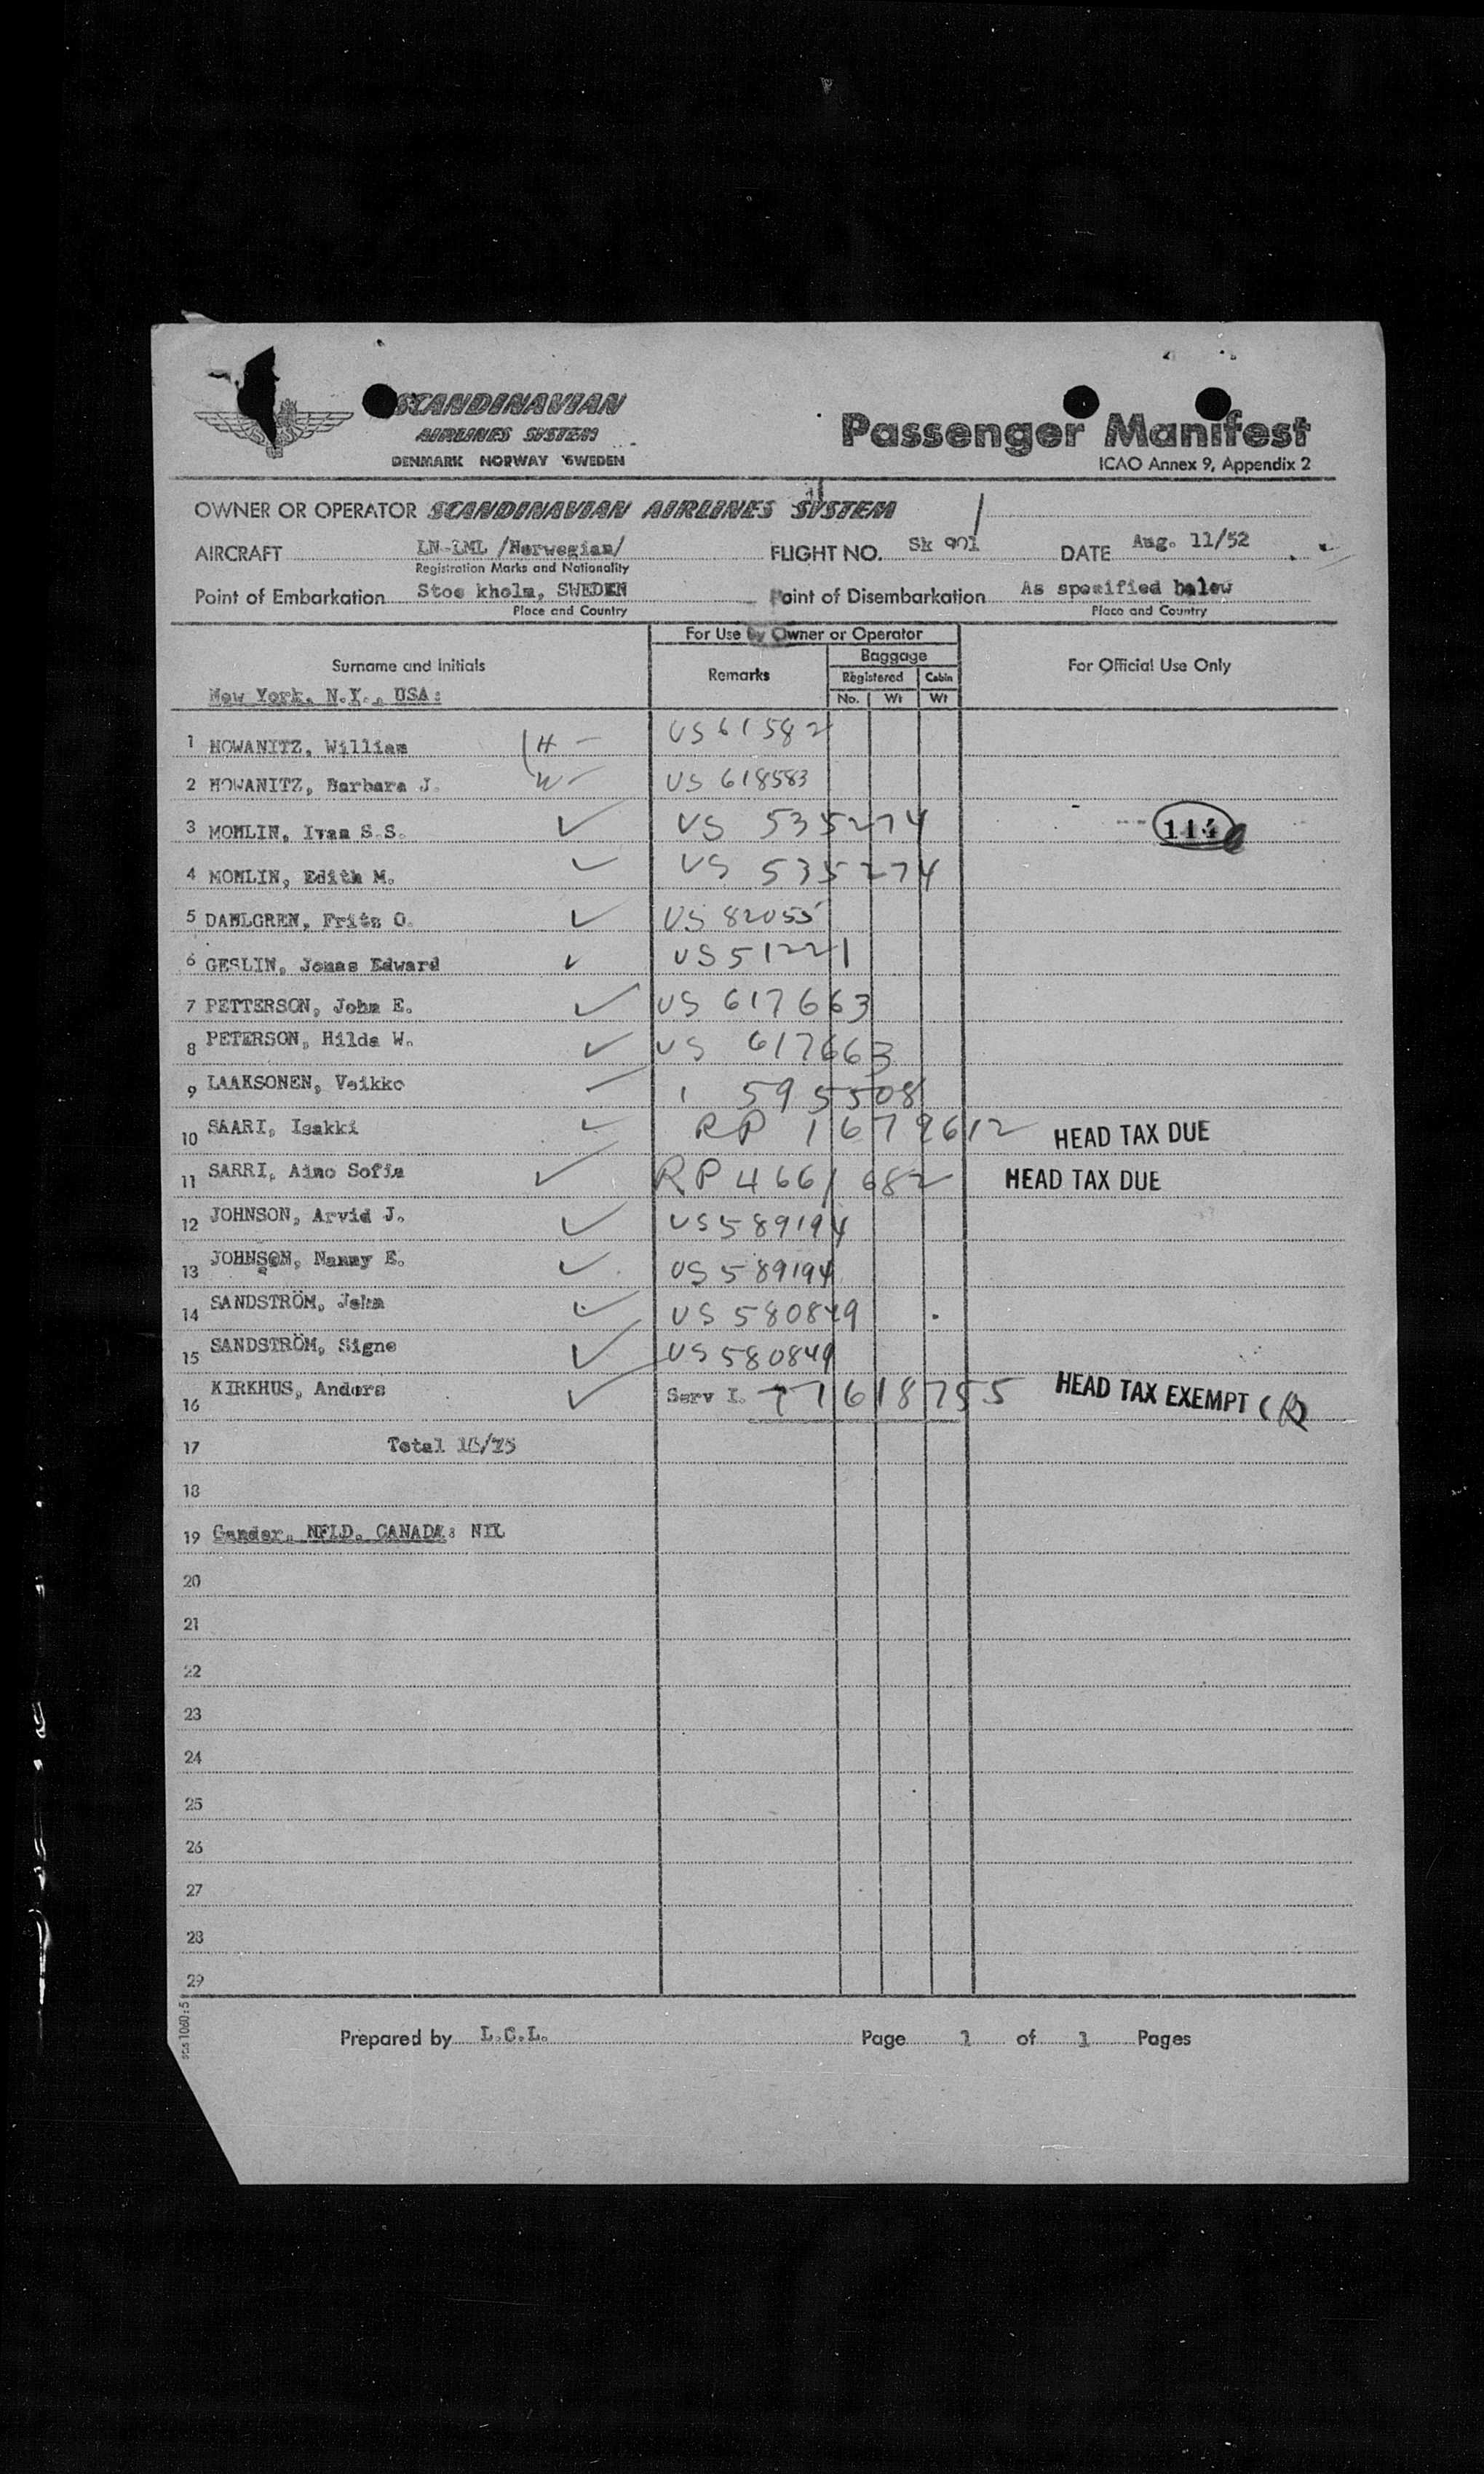 SCANDINAVIAN
AIRLINES SYSTEM
DENMARK NORWAY SWEDEN
Passenger Manifest
ICAO Annex 9, Appendix 2
OWNER OR OPERATOR SCANDINAVIAN AIRLINES SYSTEM
AIRCRAFT LN-LML /Norwegian/ FLIGHT NO. SK 901 DATE Aug. 11/52
Registration Marks and Nationality
Point of Embarkation Stoc kholm, SWEDEN Point of Disembarkation As specified below
Place and Country Place and Country
For Use by Owner or Operator
Surname and Initials Remarks Baggage For Official Use Only
Registered Cabin
No. Wt Wt
New York, N.Y., USA:
1 HOWANITZ, William H US 61582
2 HOWANITZ, Barbara J. W US 618583
3 MOHLIN, Ivan S.S. US 535274 114
4 MOHLIN, Edith M. US 535274
5 DAHLGREN, Fritz O. US 82055
6 GESLIN, Jonas Edward US 51221
7 PETTERSON, John E. US 617663
8 PETERSON, Hilda W. US 617663
9 LAAKSONEN, Veikko 595508
10 SAARI, Isakki RP 1679612 HEAD TAX DUE
11 SARRI, Aino Sofia RP 4661682 HEAD TAX DUE
12 JOHNSON, Arvid J. US 589194
13 JOHNSON, Nanny E. US 589194
14 SANDSTRÖM, John US 580849
15 SANDSTRÖM, Signe US 580849
16 KIRKHUS, Anders Serv I. 71618755 HEAD TAX EXEMPT (R)
17 Total
18
19 Gander, NFLD. CANADA: NIL
20
21
22
23
24
25
26
27
28
29
Prepared by L.C.L. Page 1 of 1 Pages